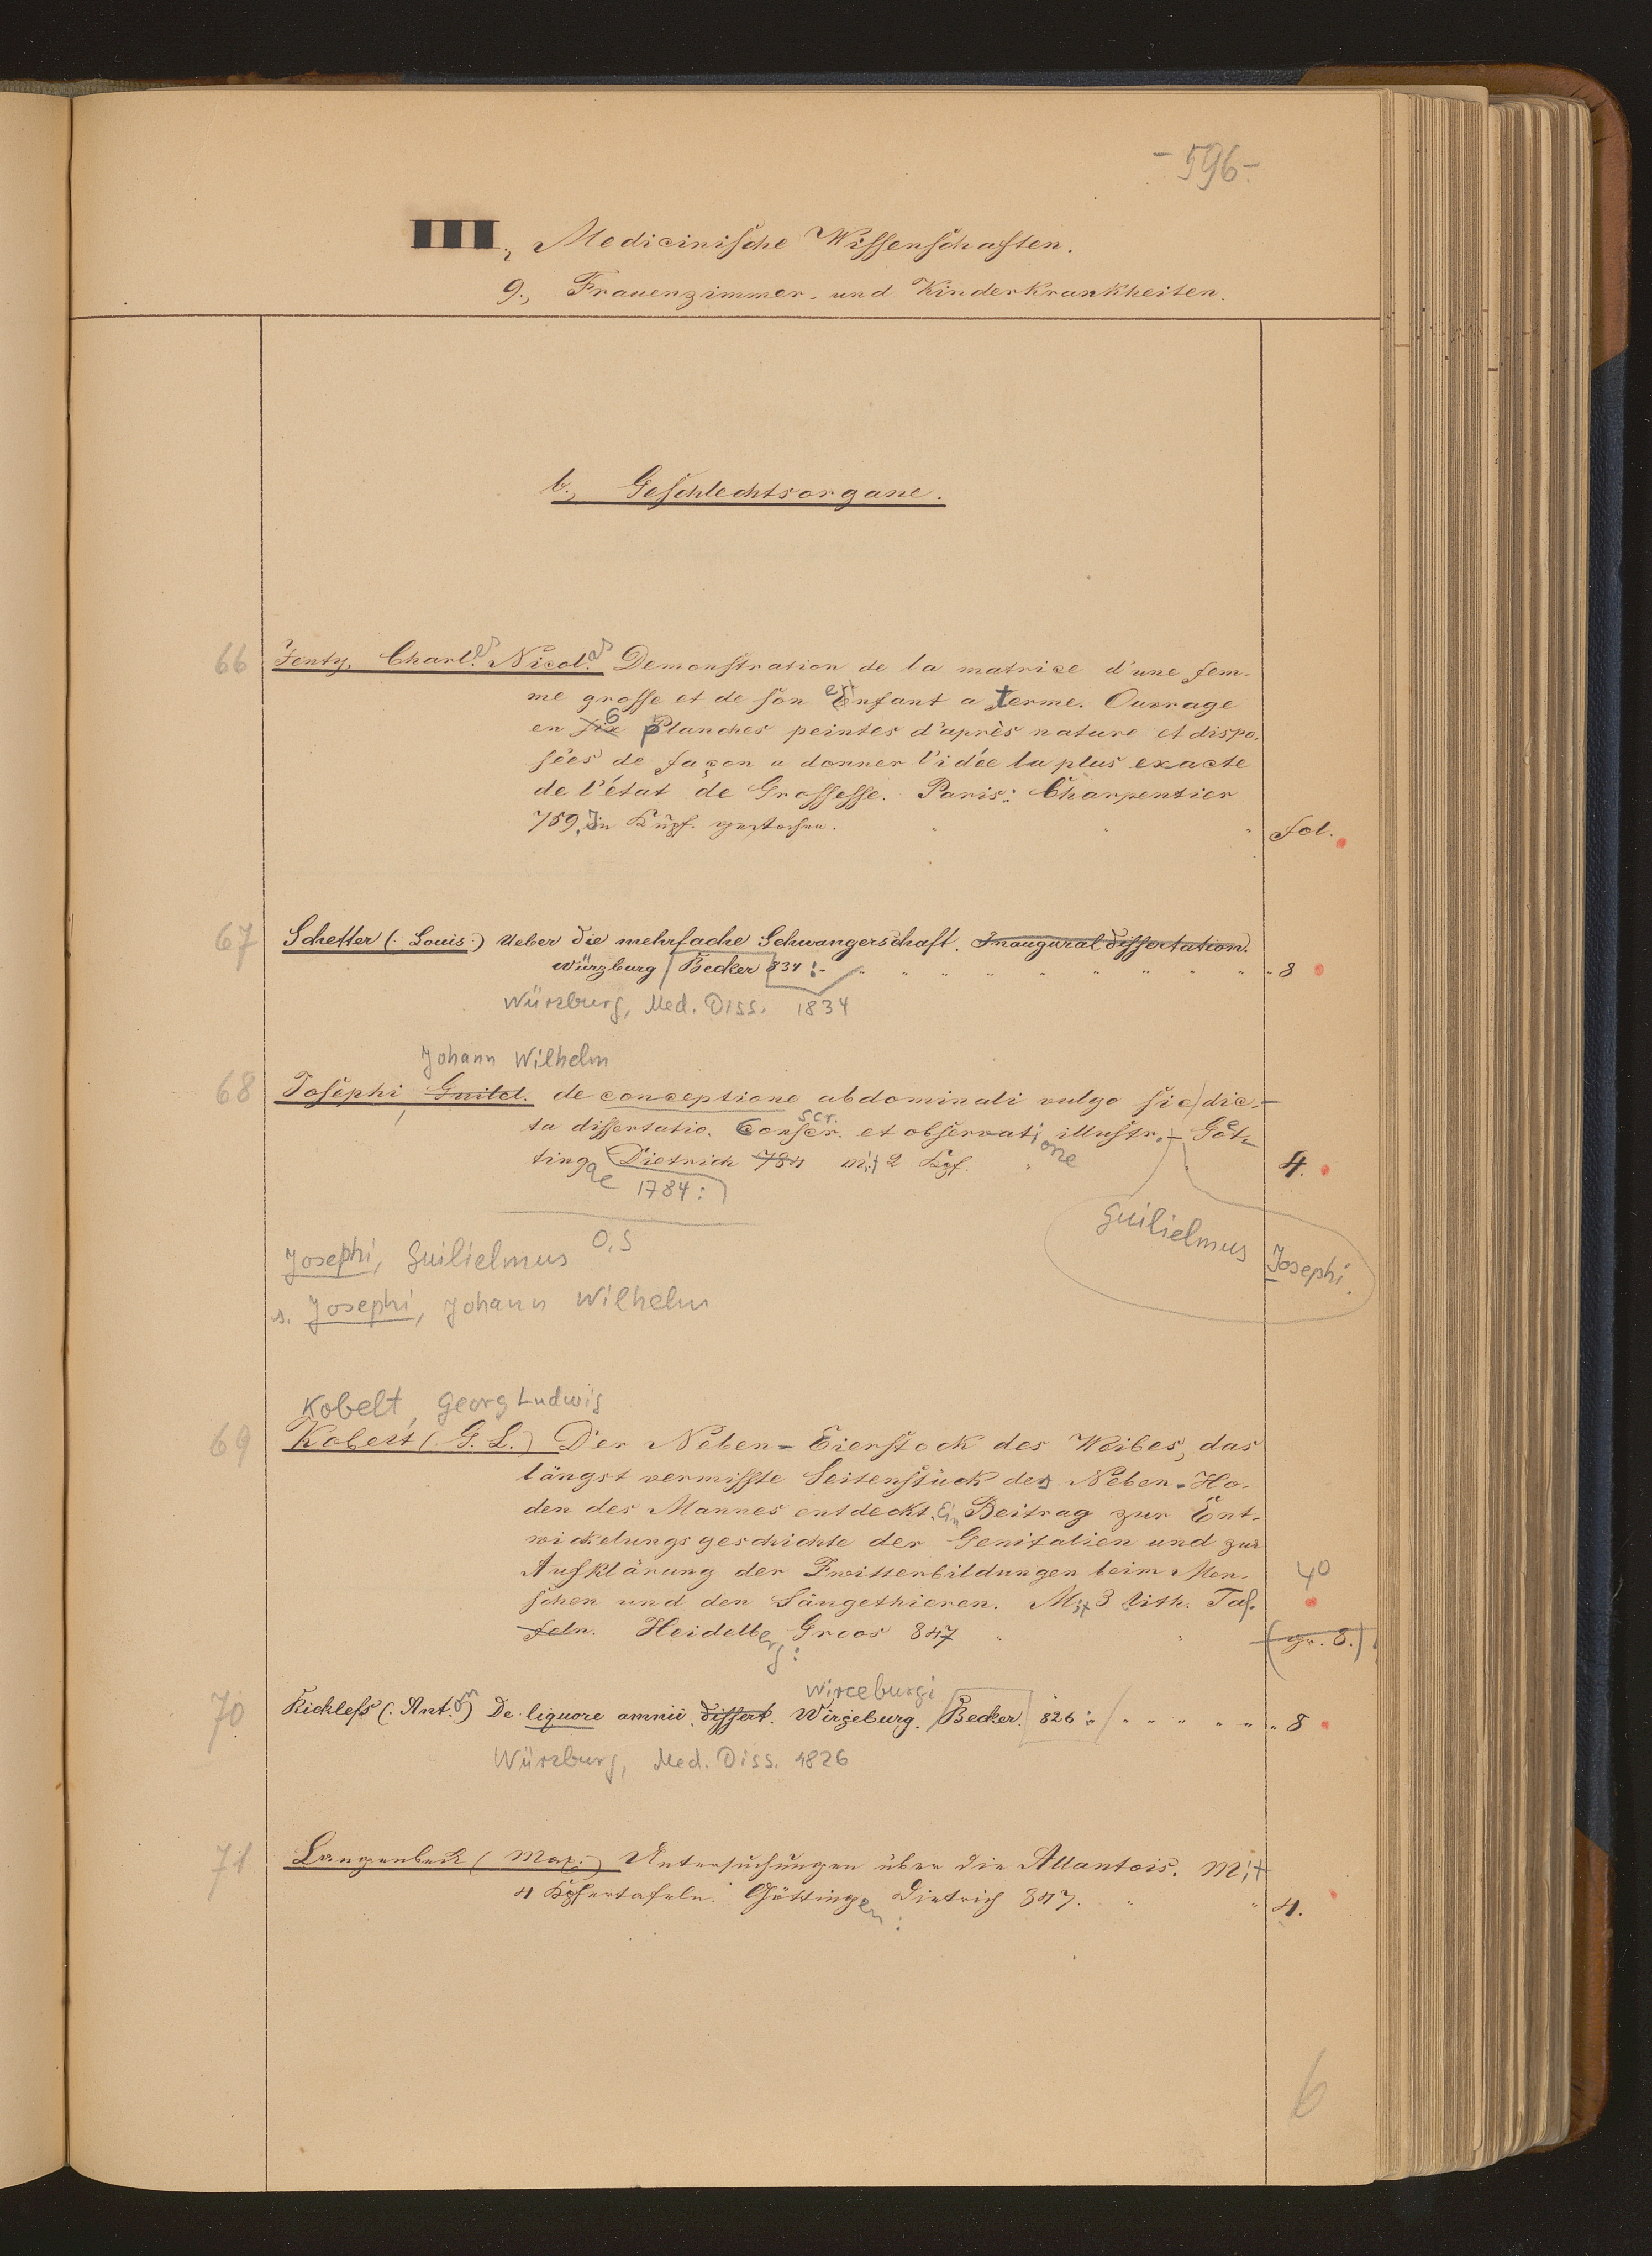 - 596 -
III., Medicinische Wissenschaften.
9., Frauenzimmer- und Kinderkrankheiten.
b., Geschlechtsorgane.
66 Jenty, Charl.es Nicol.as Demonstration de la matrice d'une fem-
me grosse et de son Enfant a terme. Ouvrage
en six 6 Planches peintes d'après nature et dispo-
sées de façon a donner l'idée la plus exacte
de l'état de Grossesse. Paris: Charpentier
759. In Kupf. gestochen. " " " fol.
67 Schetter (. Louis.) Ueber die mehrfache Schwangerschaft. Inauguraldissertation.
Würzburg Becker 834 :- " " " " " " " " 8
Würzburg, Med. Diss. 1834
Johann Wilhelm
68 Josephi Guilel. de conceptione abdominali vulgo sic dic-
ta dissertatio. Conscr. et observatione illustr. - Göt-
tingae Dietrich 784 mit 2 Kpf. " 4.
1784:
Guilielmus Josephi.
O.S
Josephi, Guilielmus
s. Josephi, Johann Wilhelm
Kobelt, Georg Ludwig
69 Kobelt (G. L.) Der Neben-Eierstock des Weibes, das
längst vermisste Seitenstück des Neben-Ho-
den des Mannes entdeckt. Ein Beitrag zur Ent-
wickelungsgeschichte der Genitalien und zur
Aufklärung der Zwitterbildungen beim Men- 4°
schen und den Säugethieren. Mit 3 lith. Taf.
feln. Heidelberg: Groos 847 " " (gr. 8.)
Wirceburgi
70 Kickless (. Anton) De liquore amnii. dissert. Wirzeburg. Becker. 826 :- " " " " " " 8
Würzburg, Med. Diss. 1826
71 Langenbeck (Max.) Untersuchungen über die Allantois. Mit
4 Kpfertafeln. Göttingen: Dietrich 847. " " 4.
6